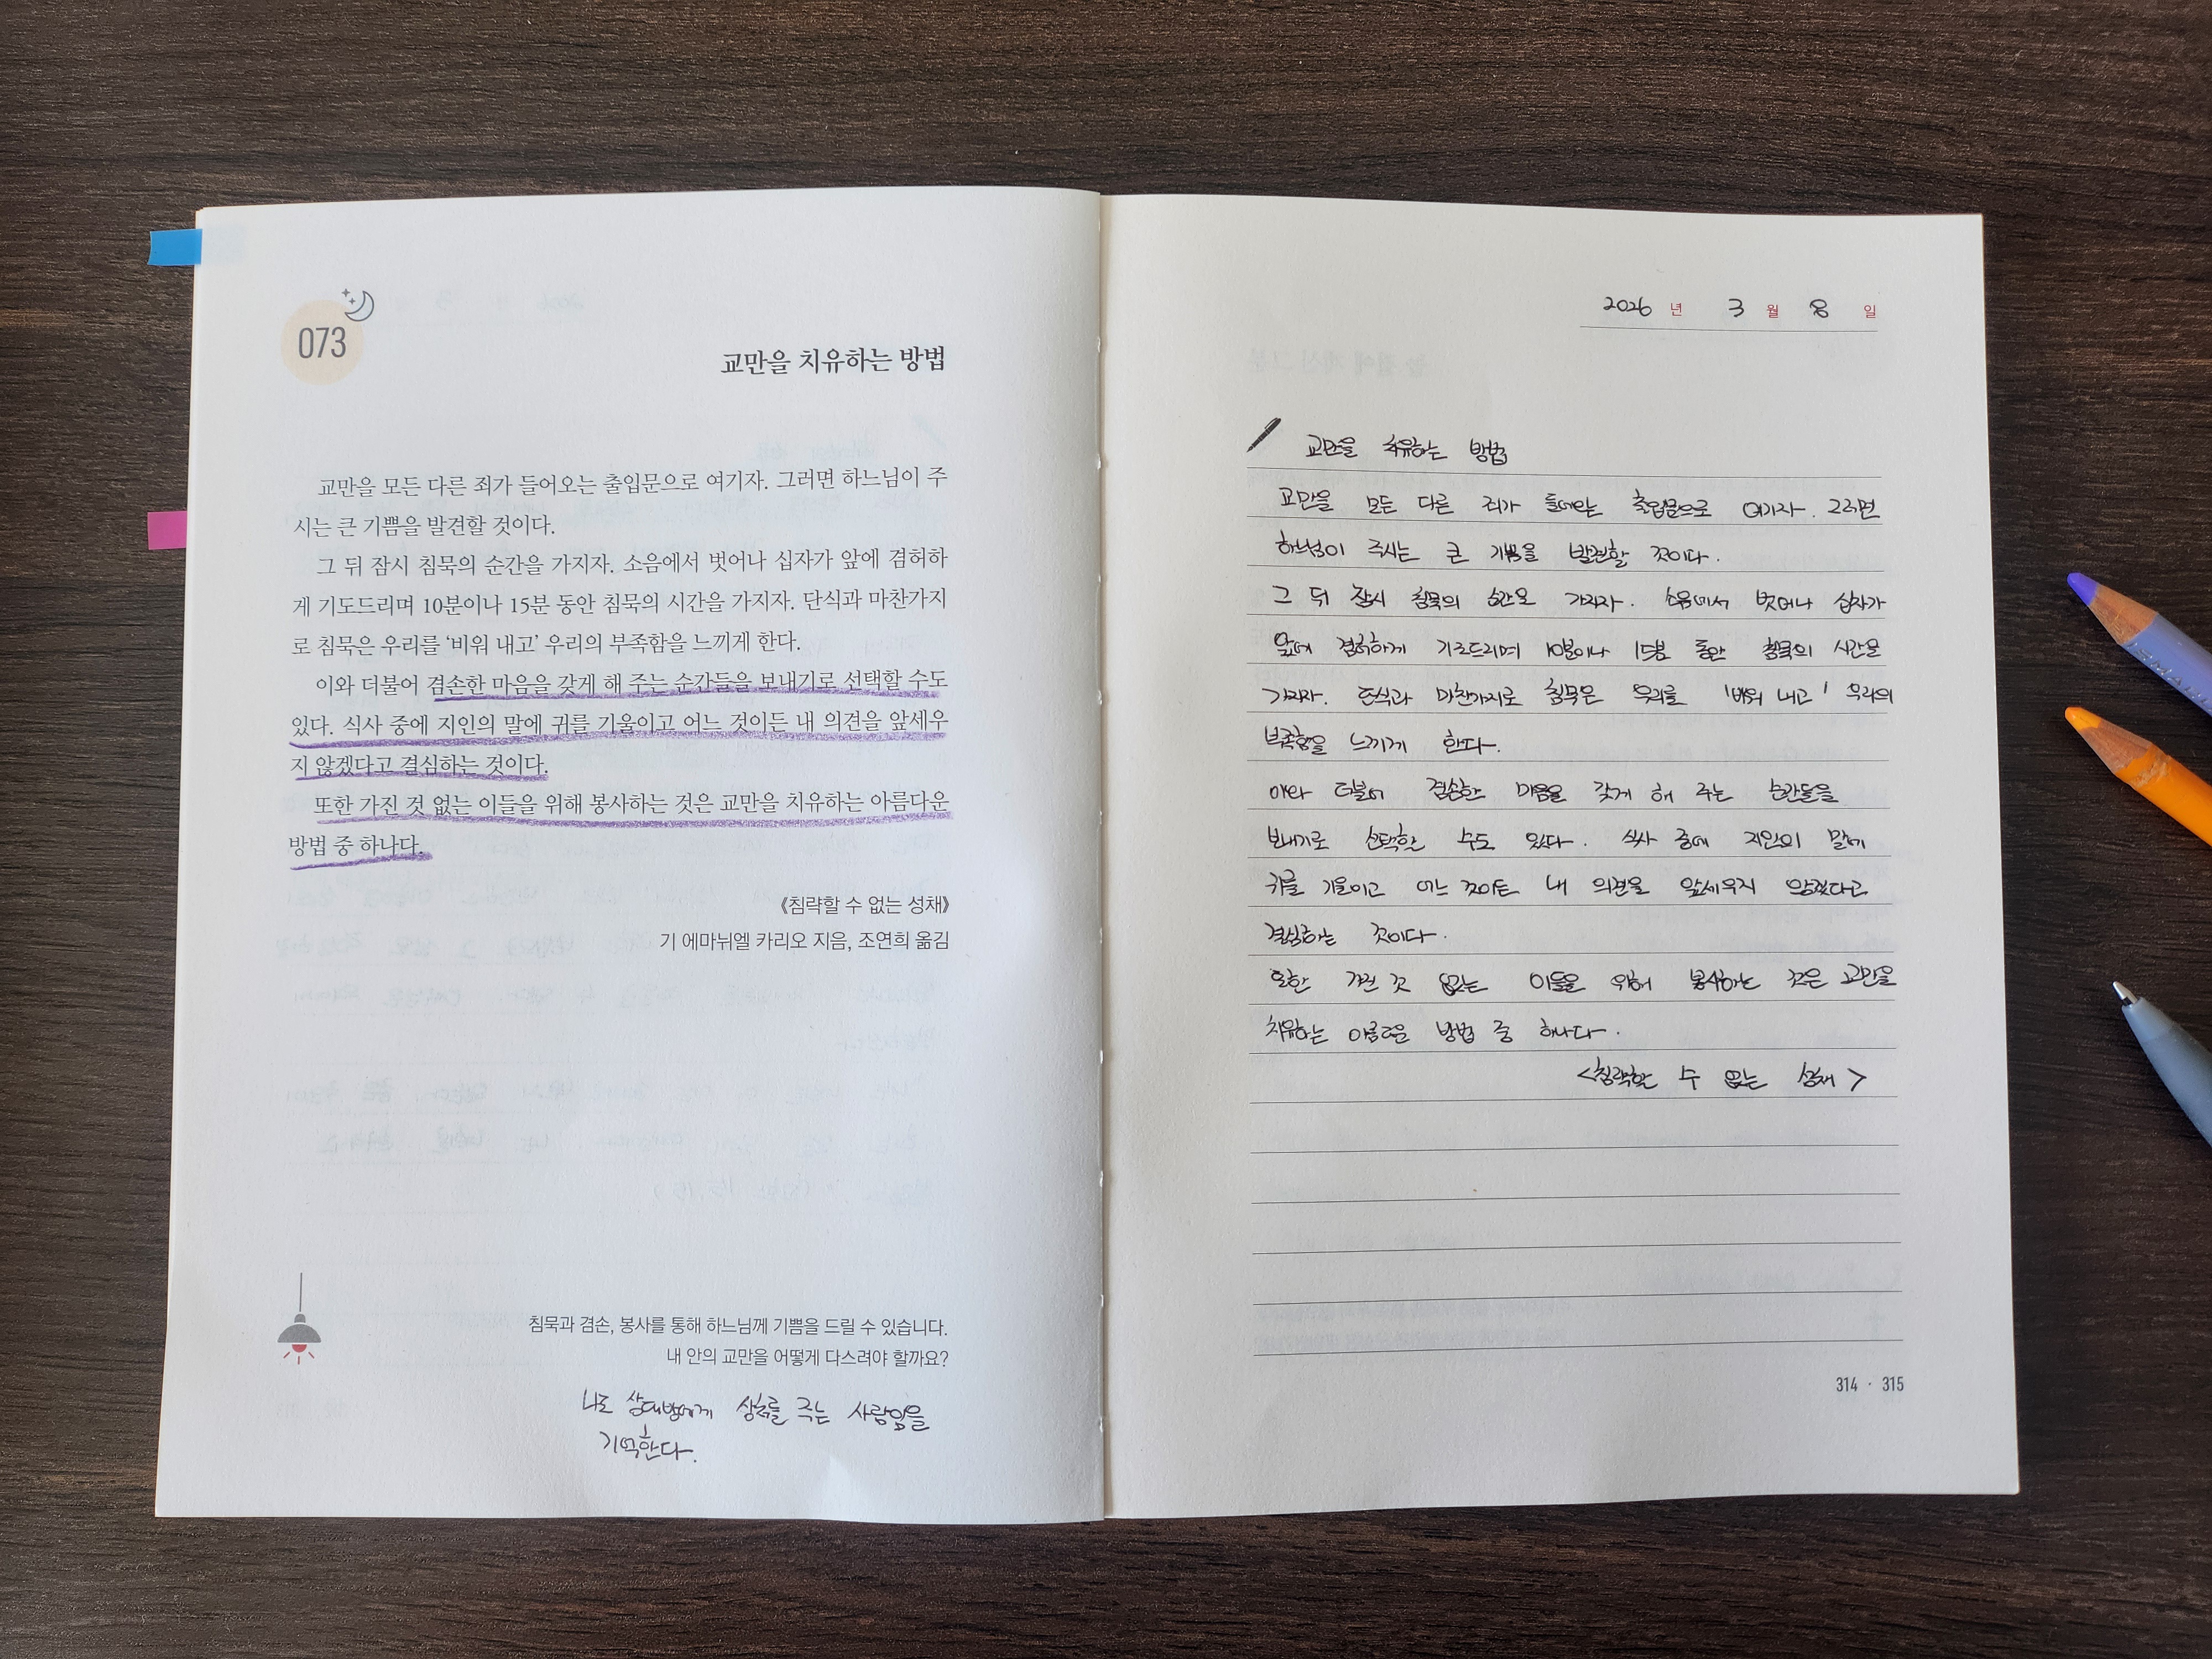 073
교만을 치유하는 방법
교만을 모든 다른 죄가 들어오는 출입문으로 여기자. 그러면 하느님이 주
시는 큰 기쁨을 발견할 것이다.
그 뒤 잠시 침묵의 순간을 가지자. 소음에서 벗어나 십자가 앞에 겸허하
게 기도드리며 10분이나 15분 동안 침묵의 시간을 가지자. 단식과 마찬가지
로 침묵은 우리를 ‘비워 내고’ 우리의 부족함을 느끼게 한다.
이와 더불어 겸손한 마음을 갖게 해 주는 순간들을 보내기로 선택할 수도
있다. 식사 중에 지인의 말에 귀를 기울이고 어느 것이든 내 의견을 앞세우
지 않겠다고 결심하는 것이다.
또한 가진 것 없는 이들을 위해 봉사하는 것은 교만을 치유하는 아름다운
방법 중 하나다.
《침략할 수 없는 성채》
기 에마뉘엘 카리오 지음, 조연희 옮김
침묵과 겸손, 봉사를 통해 하느님께 기쁨을 드릴 수 있습니다.
내 안의 교만을 어떻게 다스려야 할까요?
나도 상대방에게 상처를 주는 사람임을
기억한다.
2026 년 3 월 8 일
교만을 치유하는 방법
교만을 모든 다른 죄가 들어오는 출입문으로 여기자. 그러면
하느님이 주시는 큰 기쁨을 발견할 것이다.
그 뒤 잠시 침묵의 순간을 가지자. 소음에서 벗어나 십자가
앞에 겸허하게 기도드리며 10분이나 15분 동안 침묵의 시간을
가지자. 단식과 마찬가지로 침묵은 우리를 '비워 내고' 우리의
부족함을 느끼게 한다.
이와 더불어 겸손한 마음을 갖게 해 주는 순간들을
보내기로 선택할 수도 있다. 식사 중에 지인의 말에
귀를 기울이고 어느 것이든 내 의견을 앞세우지 않겠다고
결심하는 것이다.
또한 가진 것 없는 이들을 위해 봉사하는 것은 교만을
치유하는 아름다운 방법 중 하나다.
<침략할 수 없는 성채>
314 · 315